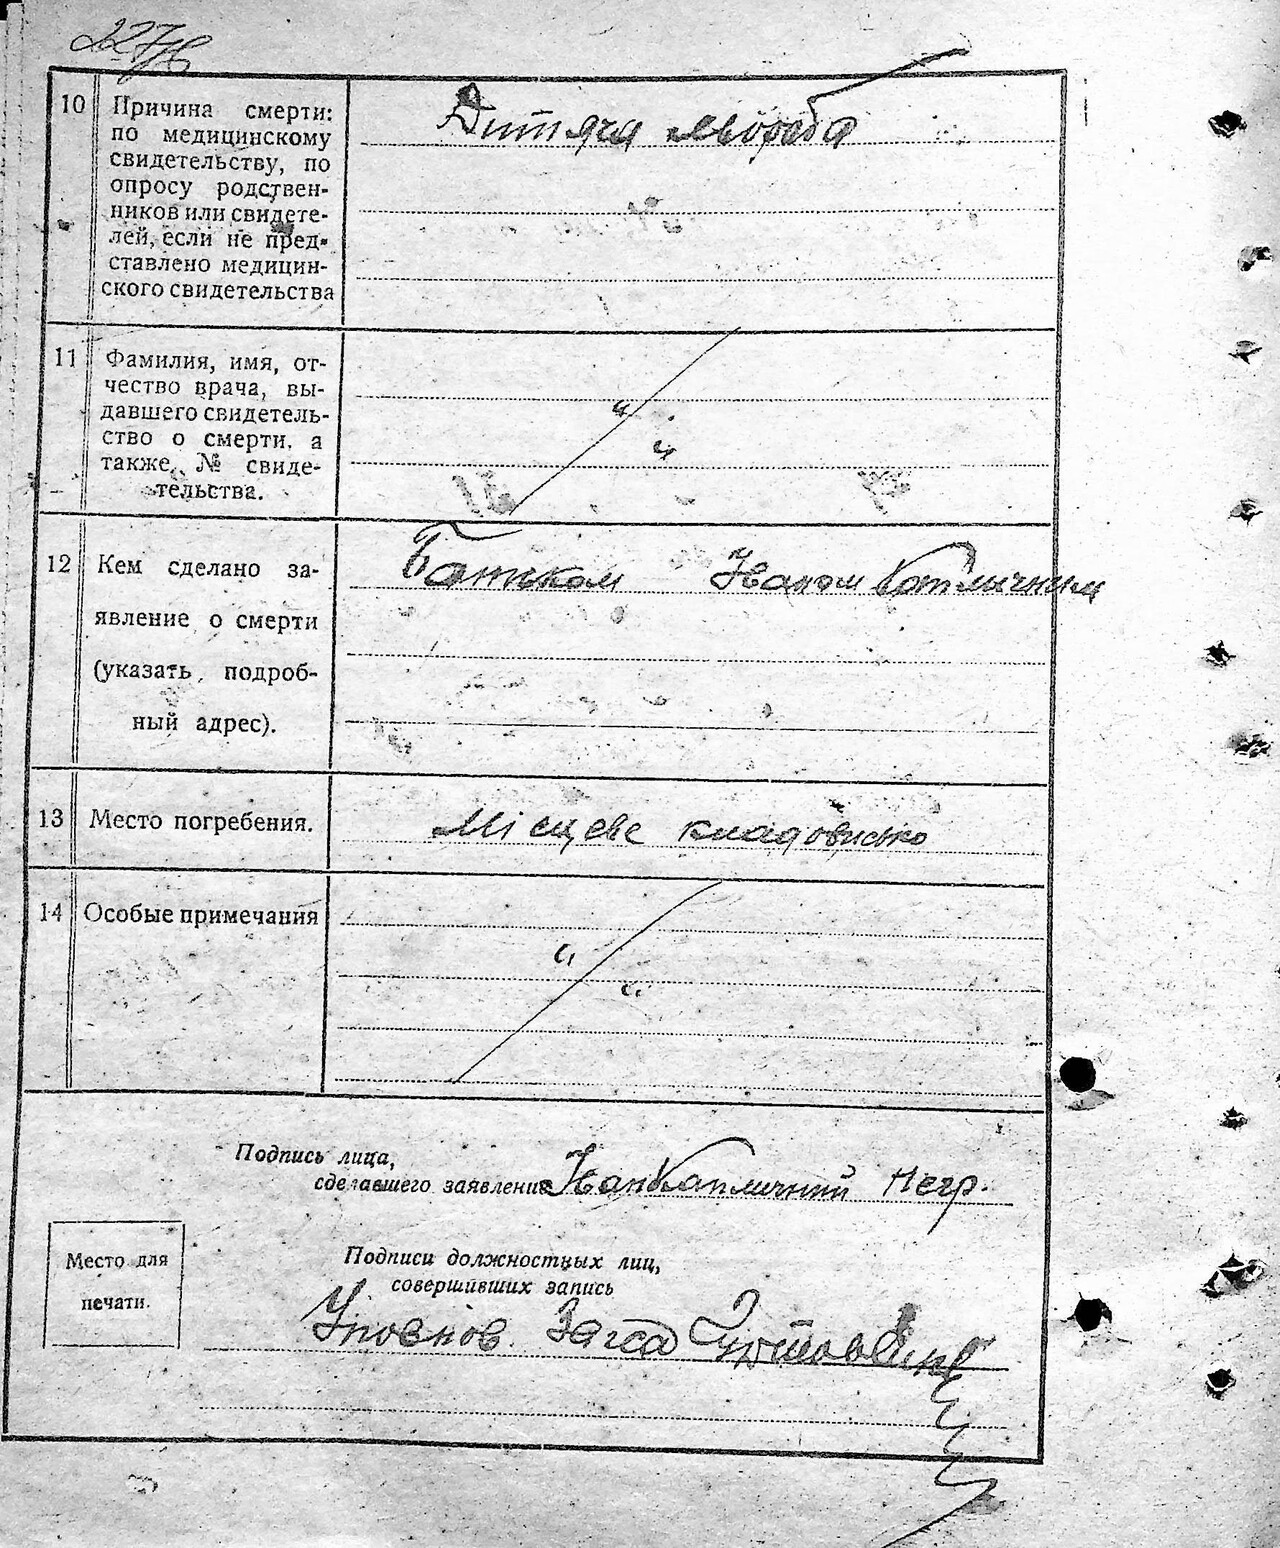 10 Причина смерти:
по медицинскому
свидетельству, по
опросу родствен-
ников или свидете-
лей, если не пред-
ставлено медицин-
ского свидетельства
Дитяча хвороба
11 Фамилия, имя, от-
чество врача, вы-
давшего свидетель-
ство о смерти, а
также № свиде-
тельства.
"
"
12 Кем сделано за-
явление о смерти
(указать подроб-
ный адрес).
Батьком Іваном Капличним
13 Место погребения.
Місцеве кладовисько
14 Особые примечания
"
"
Подпись лица,
сделавшего заявление Іван Капличний
Место для
печати.
Подписи должностных лиц,
совершивших запись
Уповнов. Загса